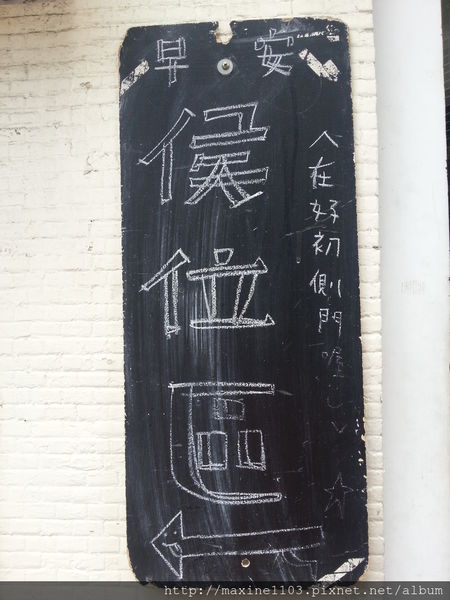 早安
侯位區
︿在好初側門喔﹀
http://maxine1103.pixnet.net/album